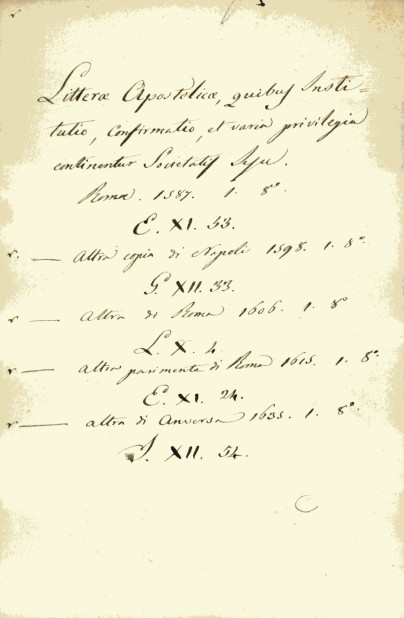 Litteræ Apostolicæ, quibus Insti=
tutio, confirmatio, et varia privilegia
continentur Societatis Jesu.
Romæ. 1587. 1. 8°.
E. XI. 33.
r. — Altra copia di Napoli 1598. 1. 8°.
G. XII. 33.
r — Altra di Roma 1606. 1. 8°
L. X. 4.
r — altra parimente di Roma 1615. 1. 8°.
E. XI. 24.
r — altra di Anversa 1635. 1. 8°.
J. XII. 54.